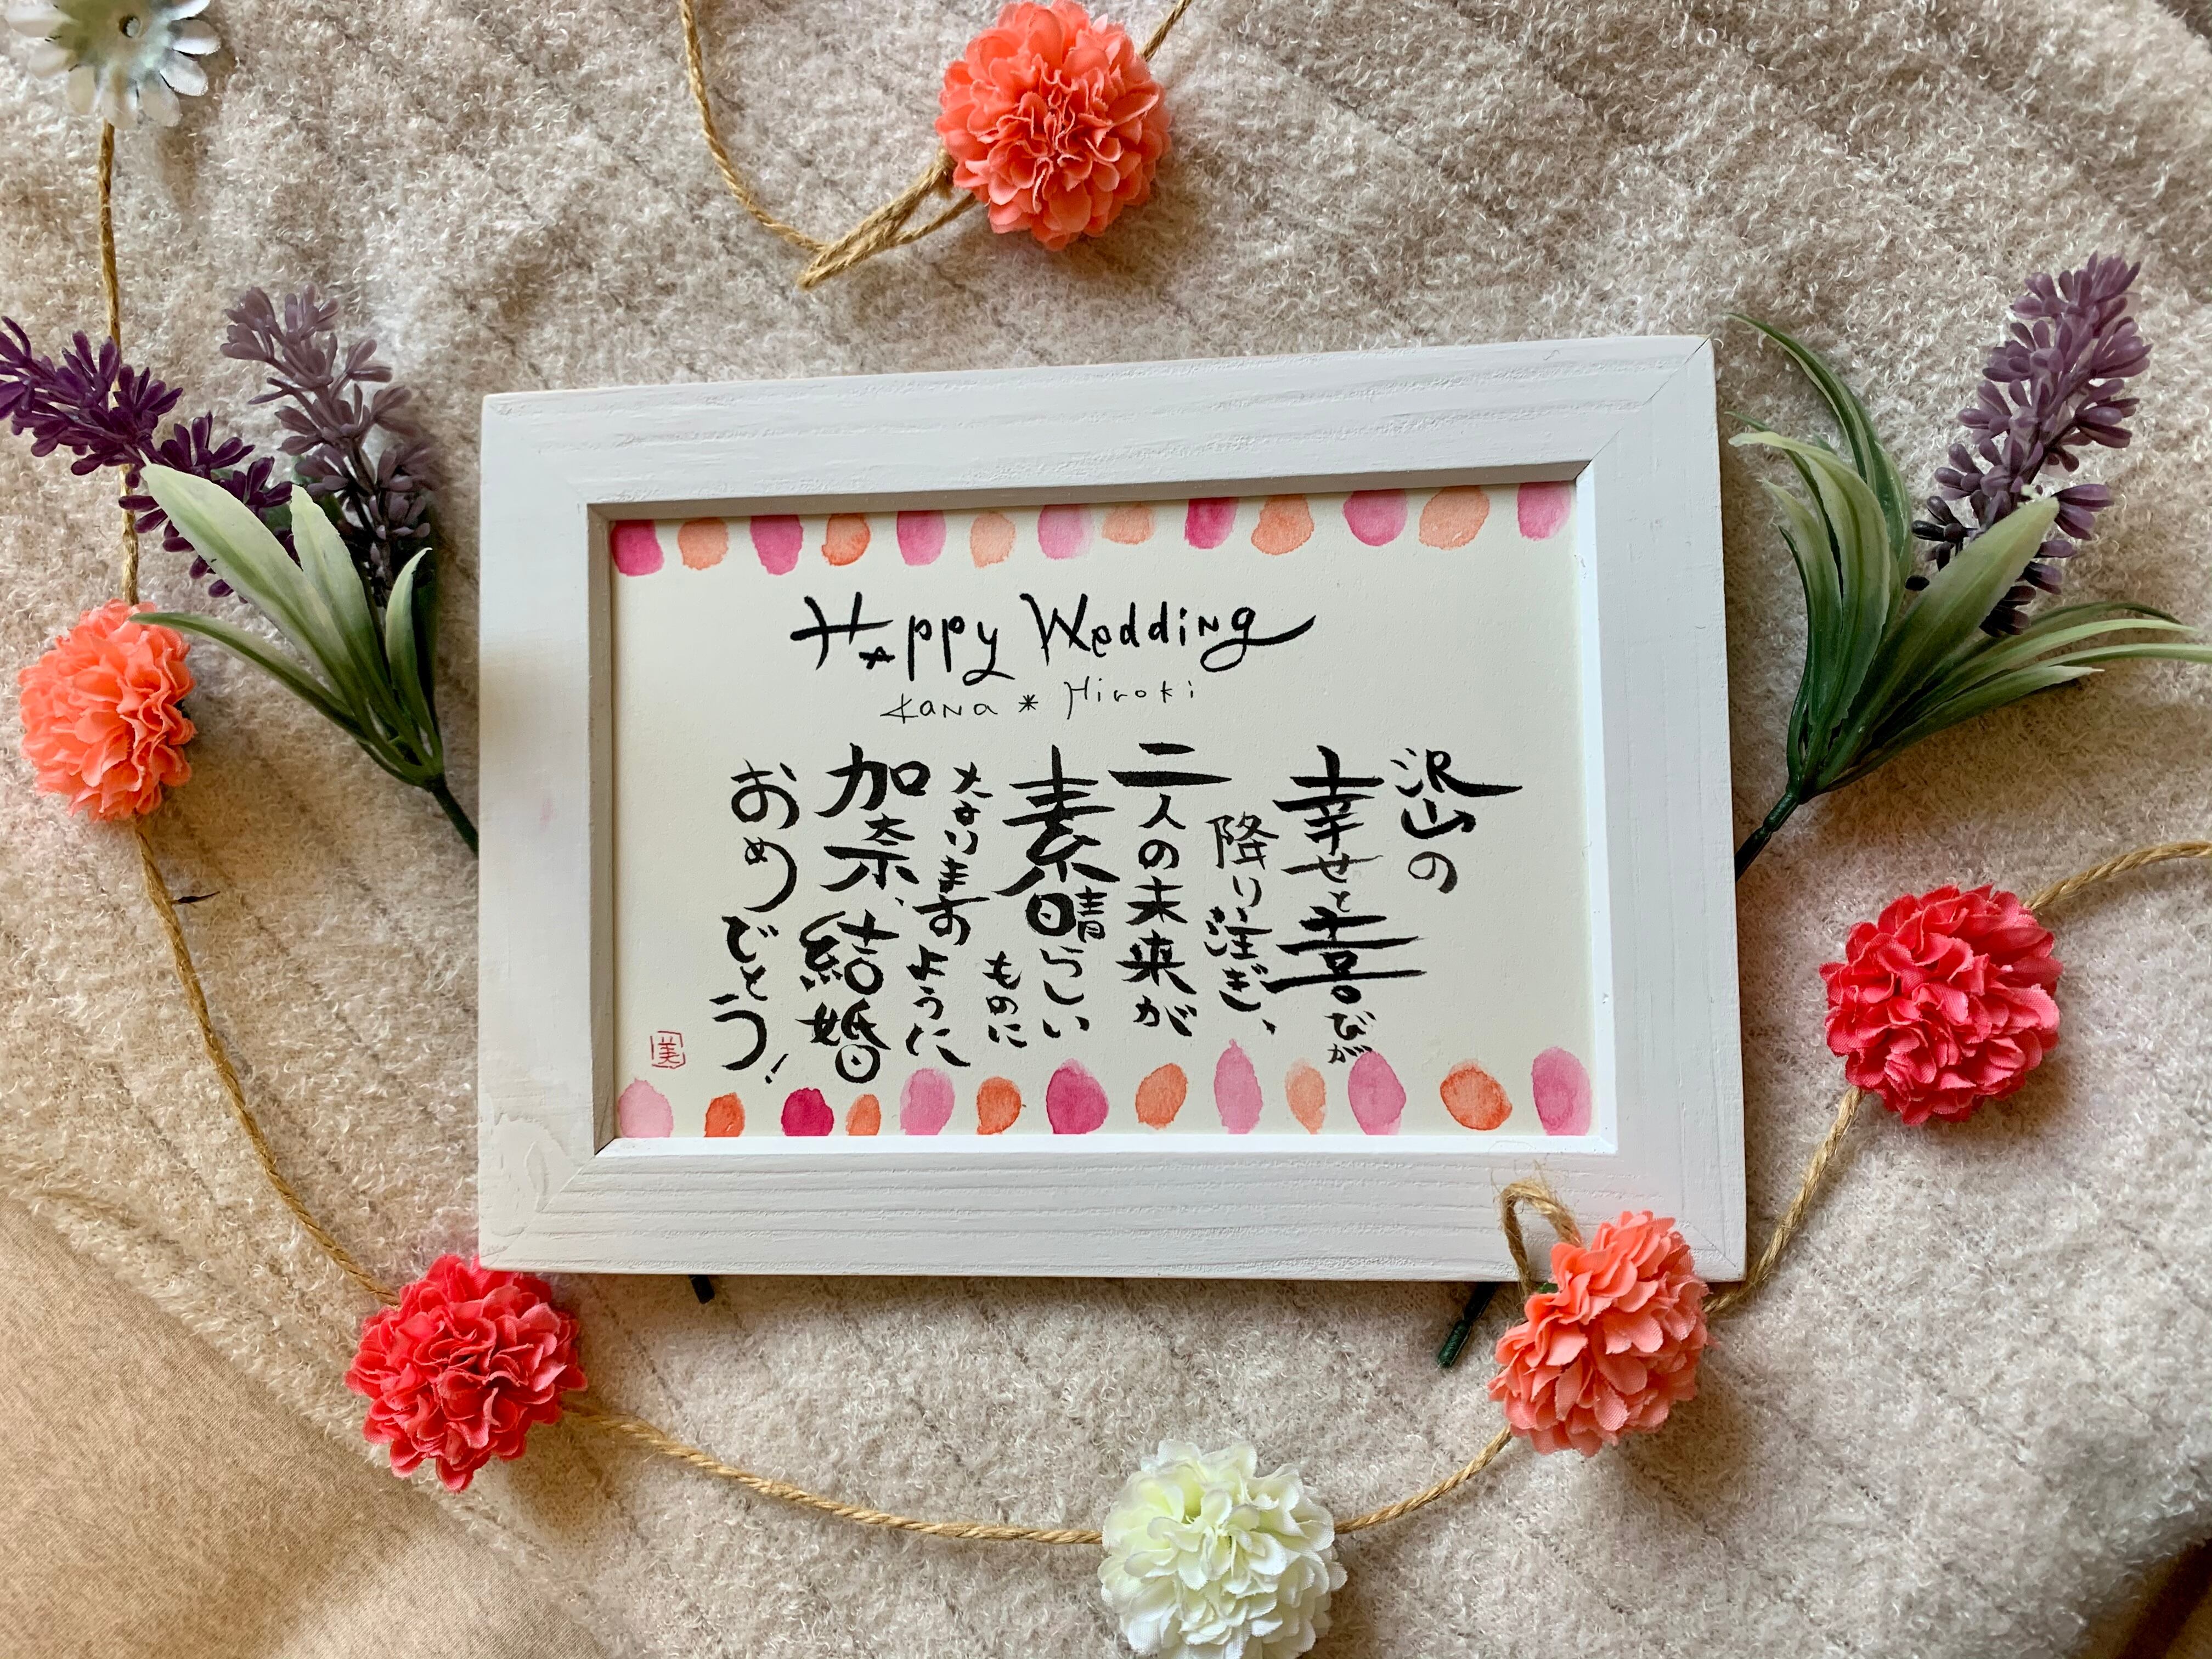 Happy Wedding
Kana * Hiroki
沢山の
幸せと喜びが
降り注ぎ、
二人の未来が
素晴らしい
ものに
なりますように
加奈、結婚
おめでとう!
美